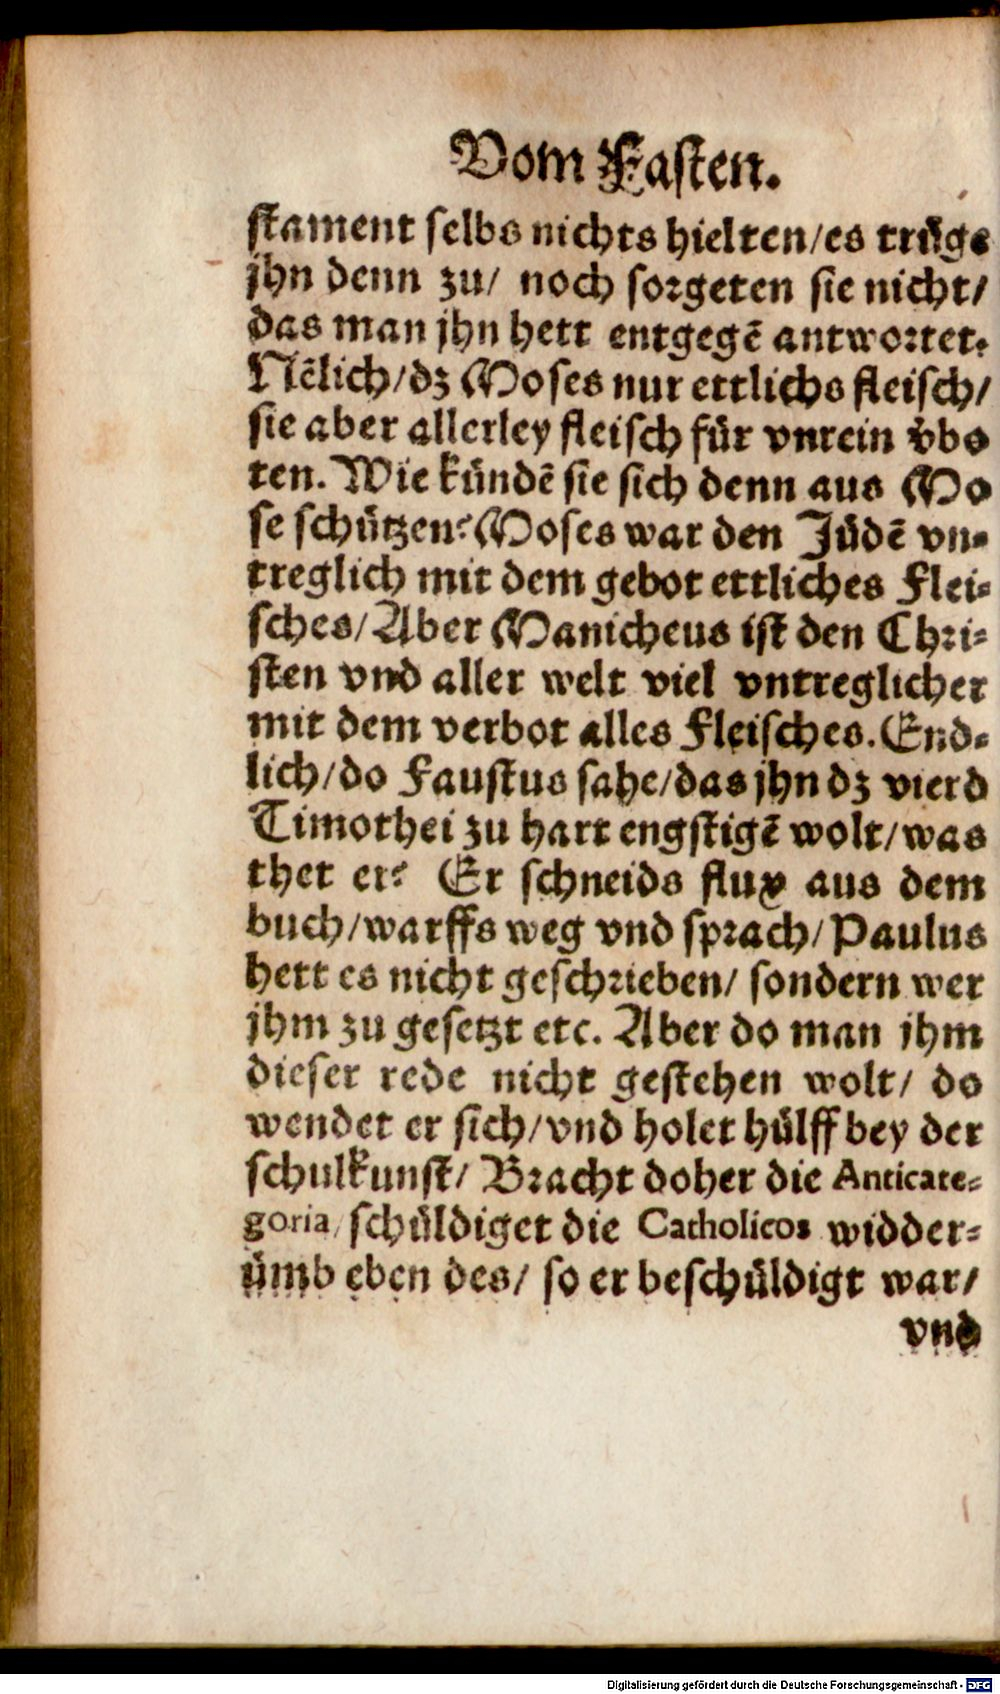 Vom Fasten.
stament selbs nichts hielten/es trüge
jhn denn zu/ noch sorgeten sie nicht/
das man jhn hett entgegẽ antwortet.
Nẽlich/dz Moses nur ettlichs fleisch/
sie aber allerley fleisch für vnrein v̈bo
ten. Wie kündẽ sie sich denn aus Mo
se schützen? Moses war den Jüdẽ vn-
treglich mit dem gebot ettliches Flei-
sches/Aber Manicheus ist den Chri-
sten vnd aller welt viel vntreglicher
mit dem verbot alles Fleisches. End-
lich/do Faustus sahe/das jhn dz vierd
Timothei zu hart engstigẽ wolt/was
thet er? Er schneids flux aus dem
buch/warffs weg vnd sprach/Paulus
hett es nicht geschrieben/ sondern wer
jhm zu gesetzt etc. Aber do man jhm
dieser rede nicht gestehen wolt/ do
wendet er sich/vnd holet hülff bey der
schulkunst/ Bracht doher die Anticate-
goria/schüldiget die Catholicos widder-
ümb eben des/ so er beschüldigt war/
vnd
Digitalisierung gefördert durch die Deutsche Forschungsgemeinschaft - DFG